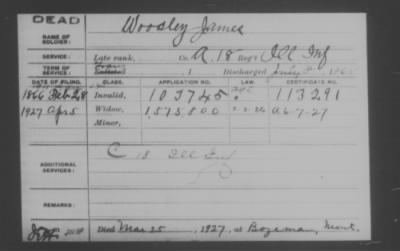 DEAD
NAME OF SOLDIER: Woosley James
SERVICE: Late rank, Co. A, 18 Reg't Ill Inf
TERM OF SERVICE: Enlisted , 1 Discharged July , 186
DATE OF FILING. CLASS. APPLICATION NO. LAW. CERTIFICATE NO.
1866 Feb 28 Invalid, 103745 113291
1927 Apr 5 Widow, 1,575,800 A 6-7-27
Minor,
C 18 Ill Inf
ADDITIONAL SERVICES:
REMARKS:
Died Mar 25, 1927, at Bozeman, Mont.